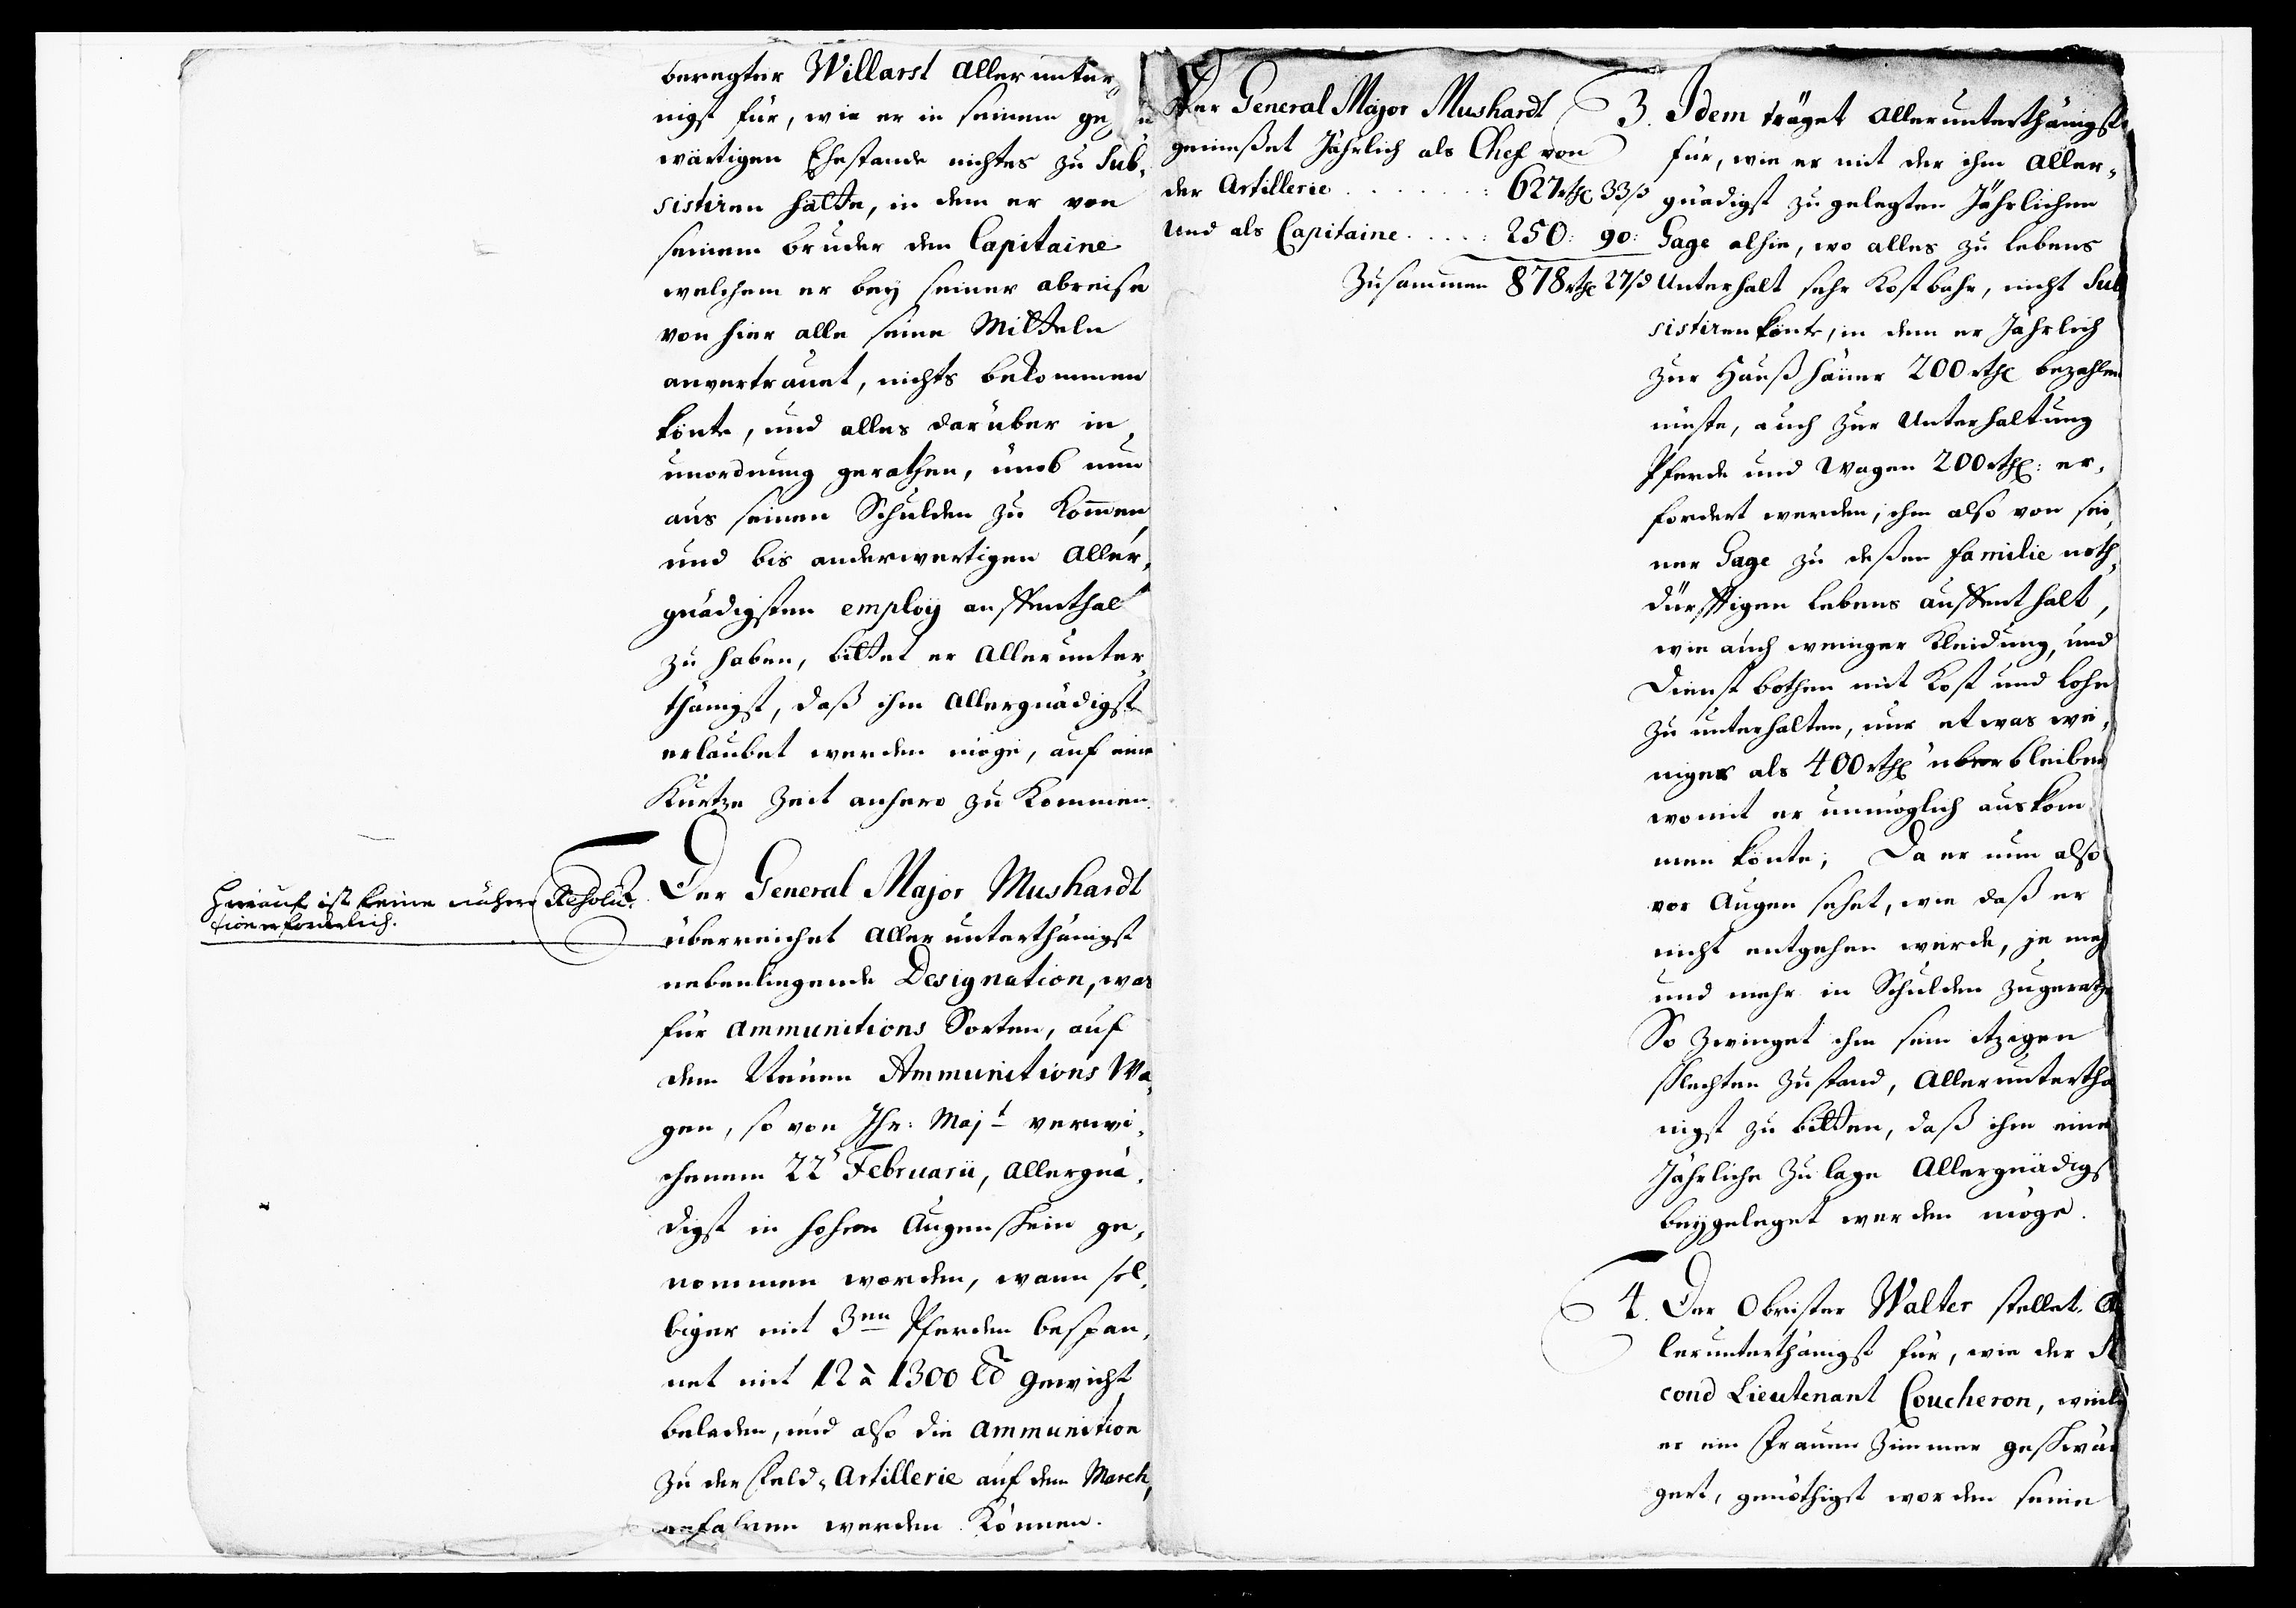 beregter Willarst allerunter,
nigst für, wie er in seinem ge¬
wärtigen Ehestande nichtes zu sub,
sistiren hätte, in dem er von
seinem bruder dem Capitaine
welchem er bey seiner abreise
von hier alle seine Mitteln
anvertrauet, nichts bekommen
könte, und alles darüber in
unordnung gerathen, umb nun
aus seinen Schulden zu kom̄en
und bis anderwertigen aller,
gnädigsten employ auffenthalt
zu haben, bittet er allerunter,
thänigst, daß ihm allergnädigst
erlaubet werden möge, auf eine
Kurtze Zeit anhero zu kommen.
Hierauf ist keine nähere Resolu-
tion erforderlich.
2. Der General Major Mushardt
überreichet allerunterthänigst
nebenliegende Designation, was
für ammunitions Sorten, auf
dem Neuen Ammunitions Wa,
gen, so von Ihr: Majt verwi,
chenem 22 Februarii, allergnä,
digst in hohen Augenschein ge,
nommen worden, wann sel,
biger mit 3en Pferden bespan,
net mit 12 à 1300 ℔ gewicht
beladen, und also die ammunition
zu der Feld-Artillerie auf dem March,
gefahren werden können.
Der General Major Mushardt
genießet Jährlich als Chef von
der Artillerie . . . . . . . : 627 rthl 33 ß
und als Capitaine . . . . : 250: 90:
Zusammen 878 rthl 27 ß
3. Idem träget allerunterthänigst
für, wie er mit der ihm aller,
gnädigst zu gelegten Jährlichen
Gage alhie, wo alles zu lebens
Unterhalt sehr Kostbahr, nicht sub
sistiren könte, in dem er Jährlich
zur Haußhäuer 200 rthl bezahlen
müste, auch zur Unterhaltung
Pferde und Wagen 200 rthl: er,
fordert werden, ihm also von sei,
ner Gage zu deßen familie noth,
dürfftigen lebens auffenthalt,
wie auch weniger Kleidung, und
Dienst bothen mit Kost und lohn
zu unterhalten, nur etwas we,
niger als 400 rthl überbleiben
womit er unmöglich auskom
men könte; Da er nun also
vor Augen sehet, wie daß er
nicht entgehen werde, je meh
und mehr in Schulden zugerath
So zwinget ihm sein itzigen
schlechten Zustand, allerunterthä
nigst zu bitten, daß ihm eine
Jährliche Zulage Allergnädigst
beygeleget werden möge.
4. Der Obrister Walter stellet Al
lerunterthänigst für, wie der Se
cond Lieutenant Coucheron, weile
er ein Frauen Zimmer geschwän
gert, genöthigst worden seine